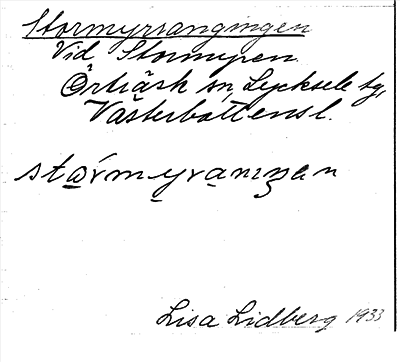 Stormyrrangingen
Vid Stormyren
Örträsk sn, Lycksele tg,
Västerbottens l.
stɷŕmyranıŋən
Lisa Lidberg 1933